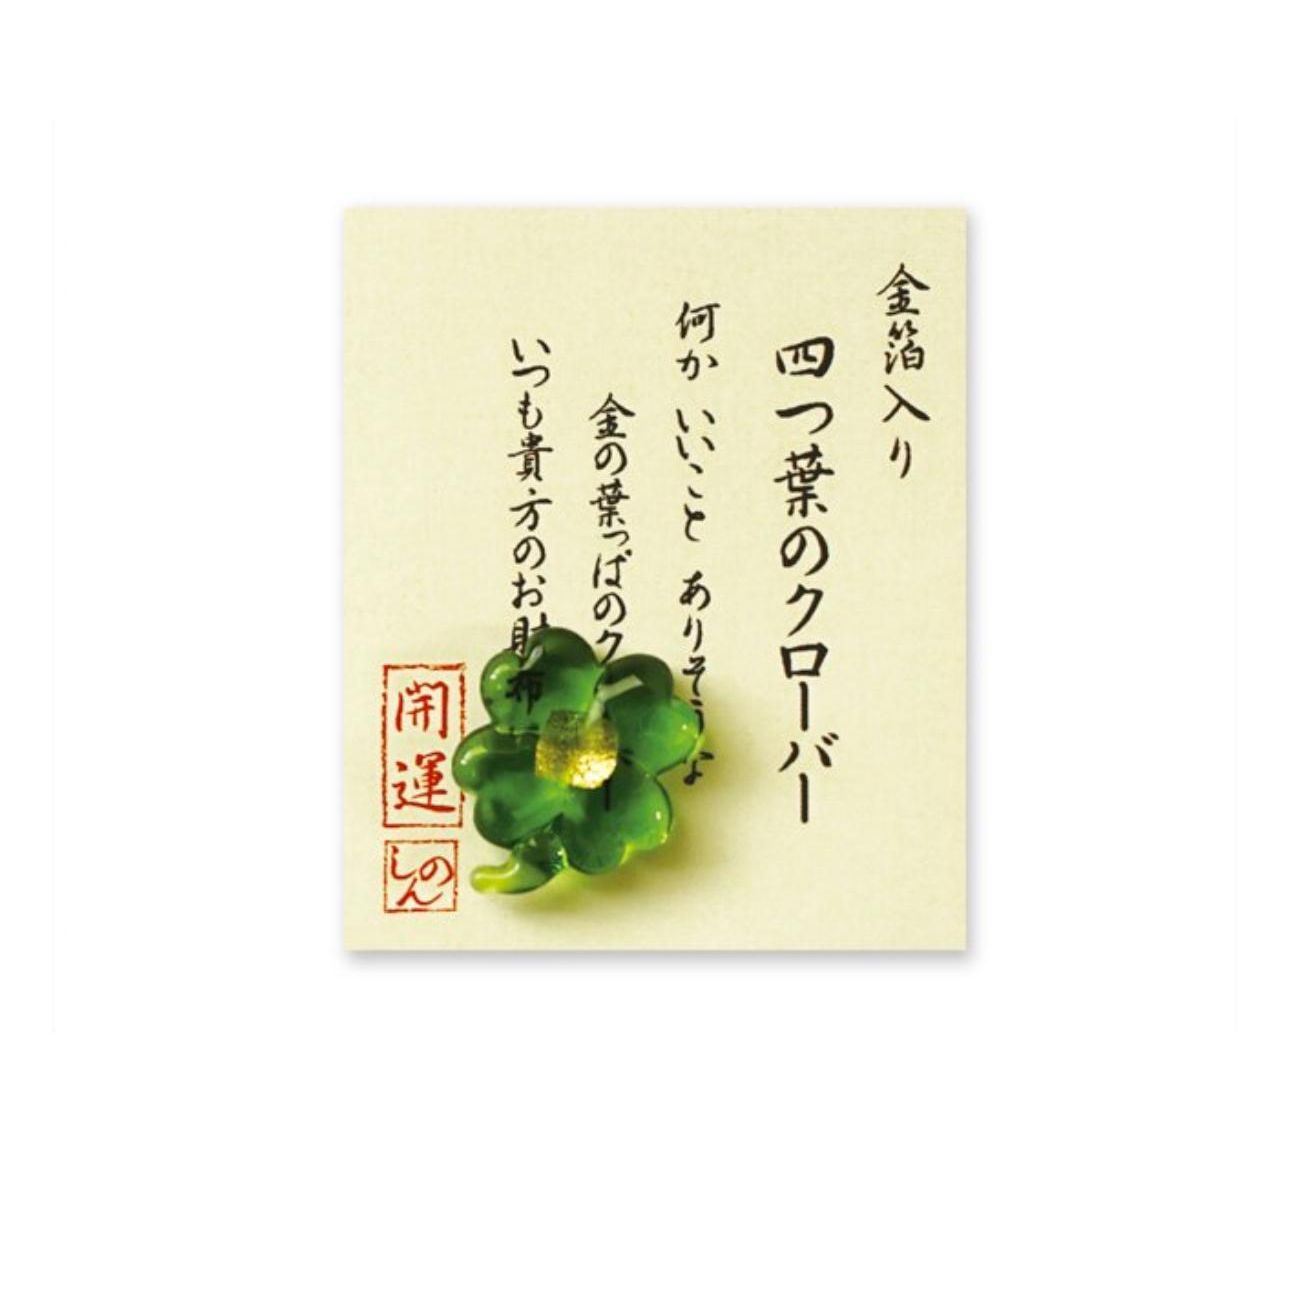 金箔入り
四つ葉のクローバー
何か いいこと ありそうな
金の葉っぱのク
いつも貴方のお財布
開運
しのん